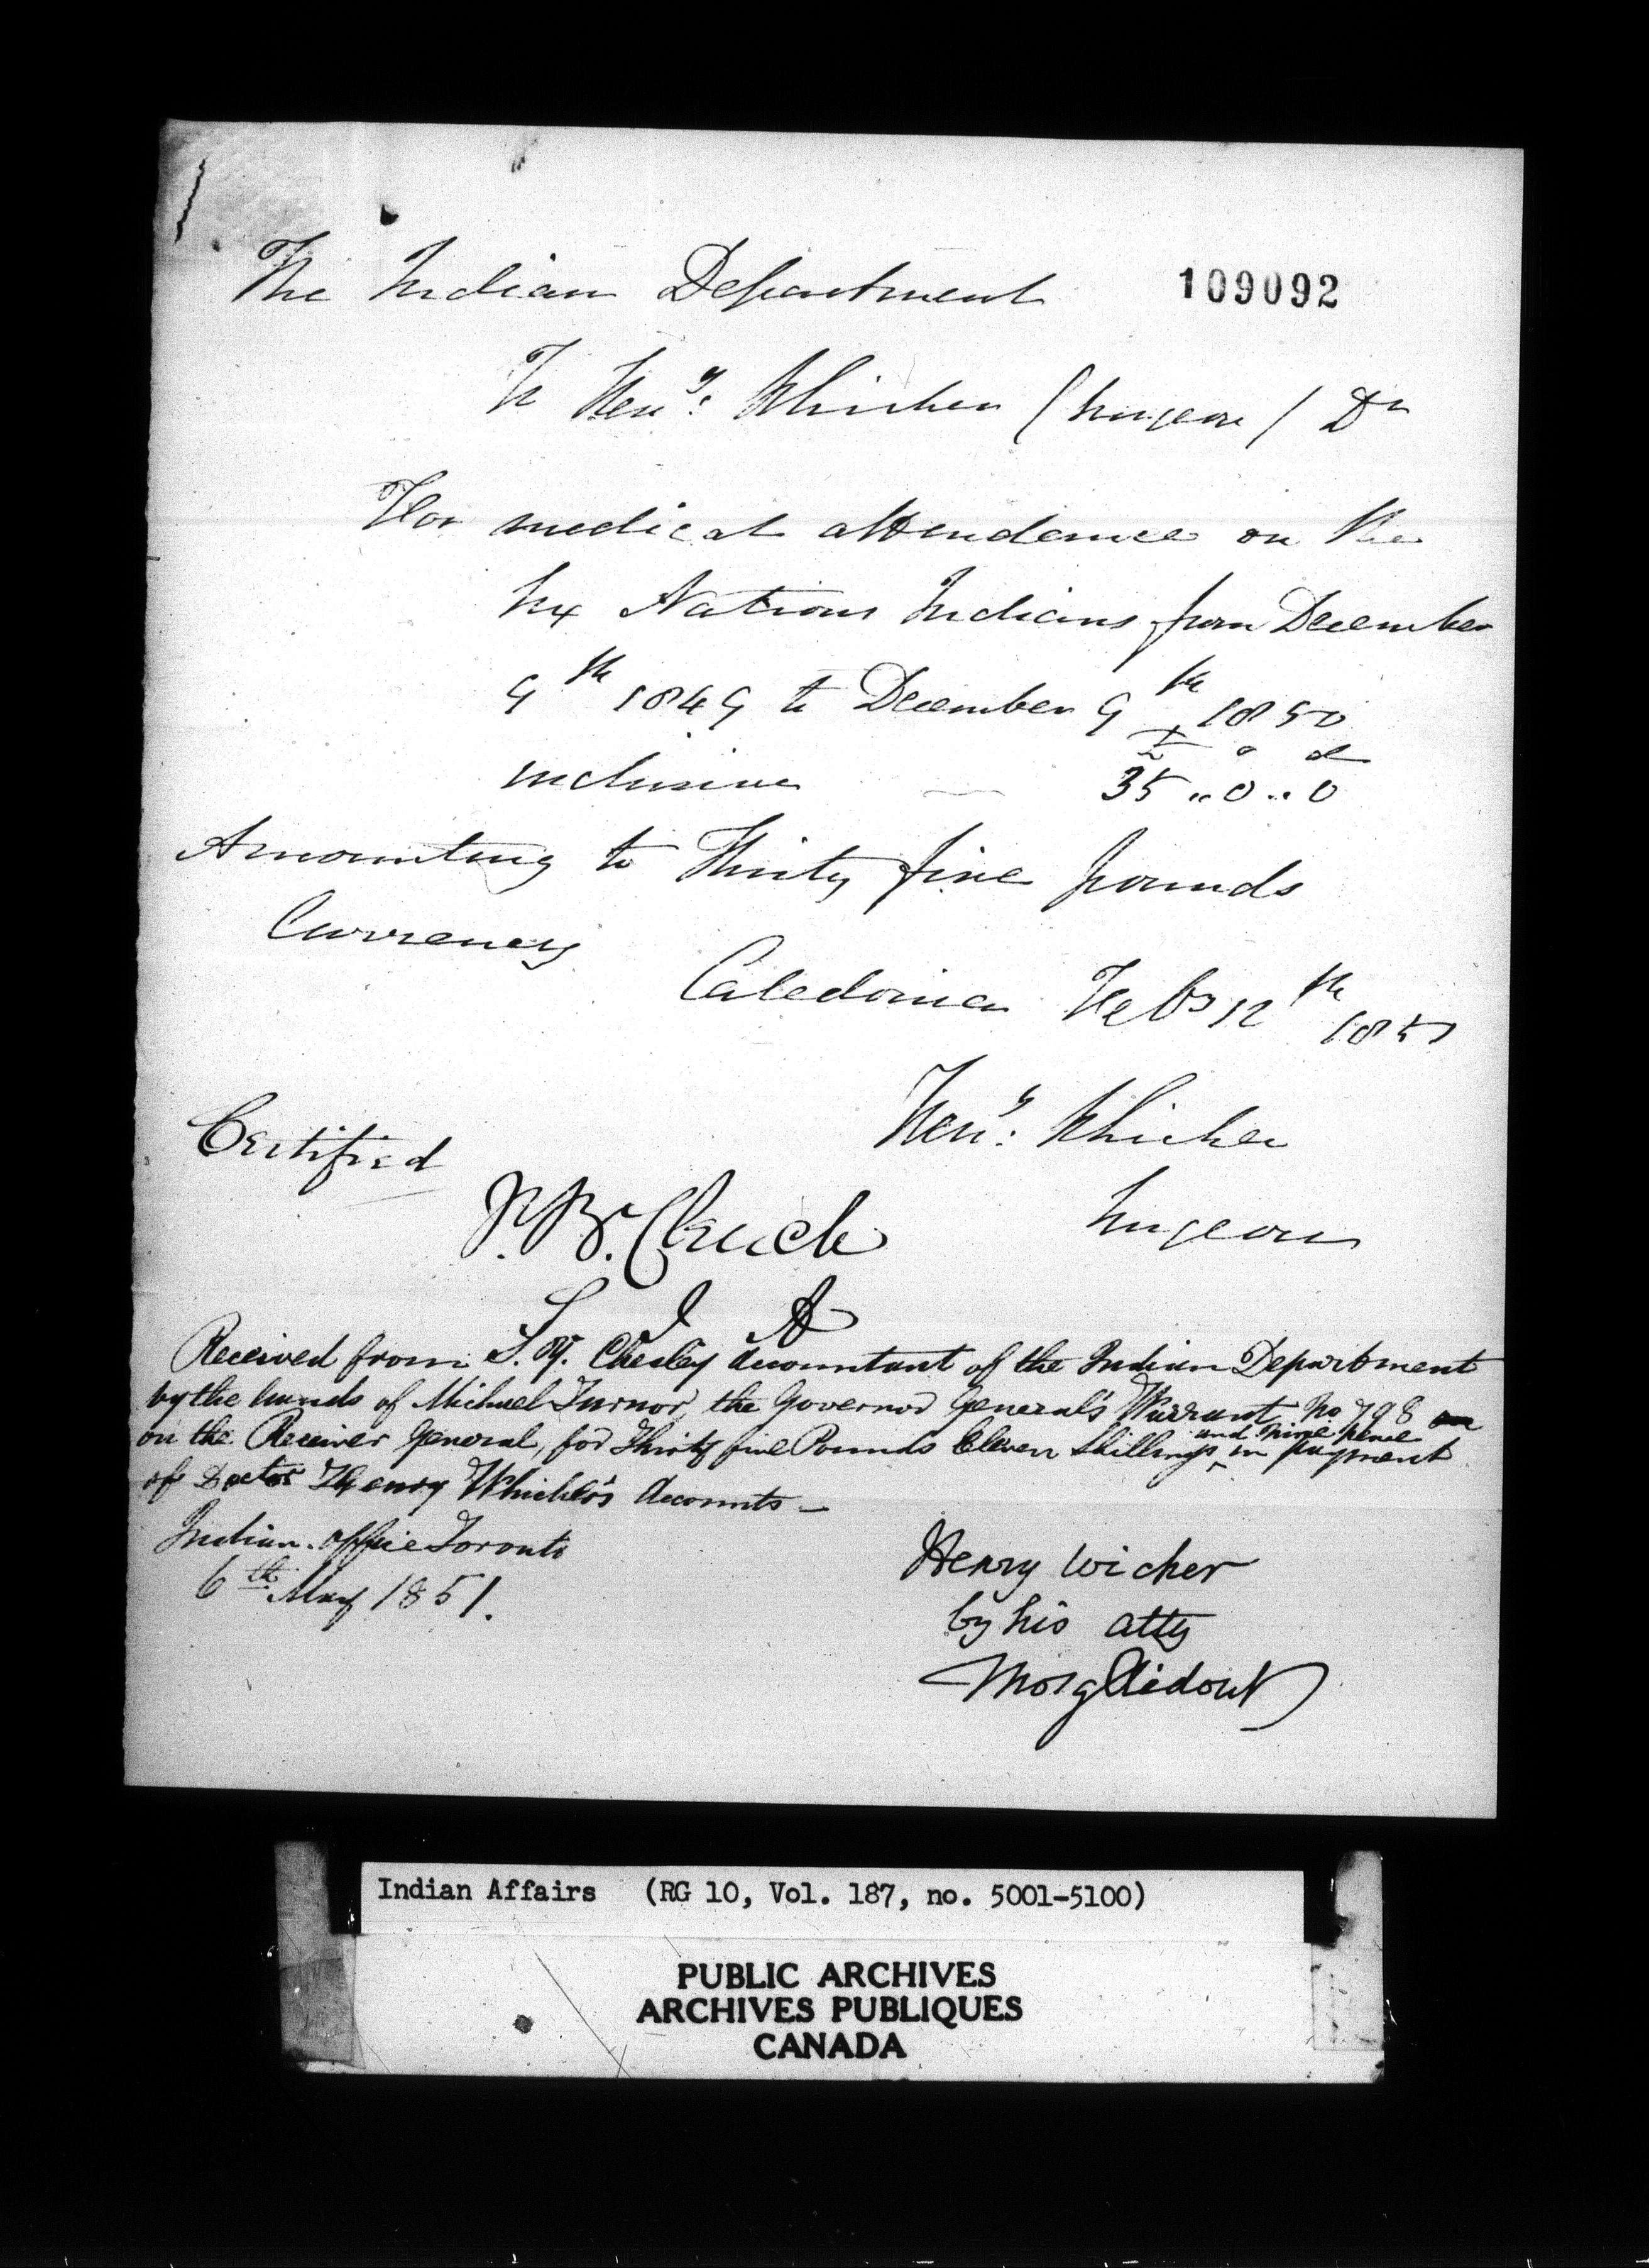 The Indian Department
109092
To Hen^y: Whicher (Surgeon) D^r
For medical attendance on the
Six Nations Indians from December
9^th 1849 to December 9^th 1850
£ s d
inclusive 35 ,, 0 ,, 0
Amounting to Thirty five pounds
Currency
Caledonia Feb^y 12^th 1851
Hen^y: Whicher
Surgeon
Certified
S I A
Received from S. Y. Chesley Accountant of the Indian Department
by the hands of Michael Turnor, the Governor General's Warrant No 798
and nine pence
on the Receiver General, for Thirty five Pounds Eleven Shillings ^ in payment
of Doctor Henry Whicher's Accounts —
Indian Office Toronto
6^th May 1851.
Henry Wicher
by his atty
Thos g Ridout
Indian Affairs (RG 10, Vol. 187, no. 5001-5100)
PUBLIC ARCHIVES
ARCHIVES PUBLIQUES
CANADA